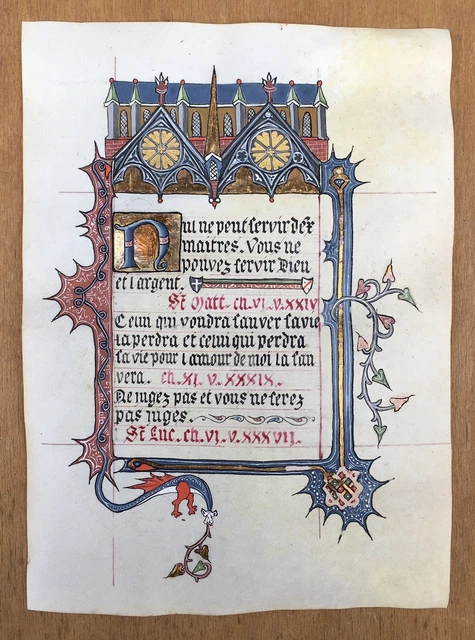 Nul ne peut servir dex
maitres. Vous ne
pouvez servir Dieu
et l argent.
St Matt. ch. VI. V. XXIV
Celui qui vondra sauver sa vie
la perdra et celui qui perdra
sa vie pour l amour de moi la sau
vera. ch. XI. V. XXXIX.
Ne jugez pas et vous ne serez
pas juges.
St Luc. ch. VI. V. XXXVII.